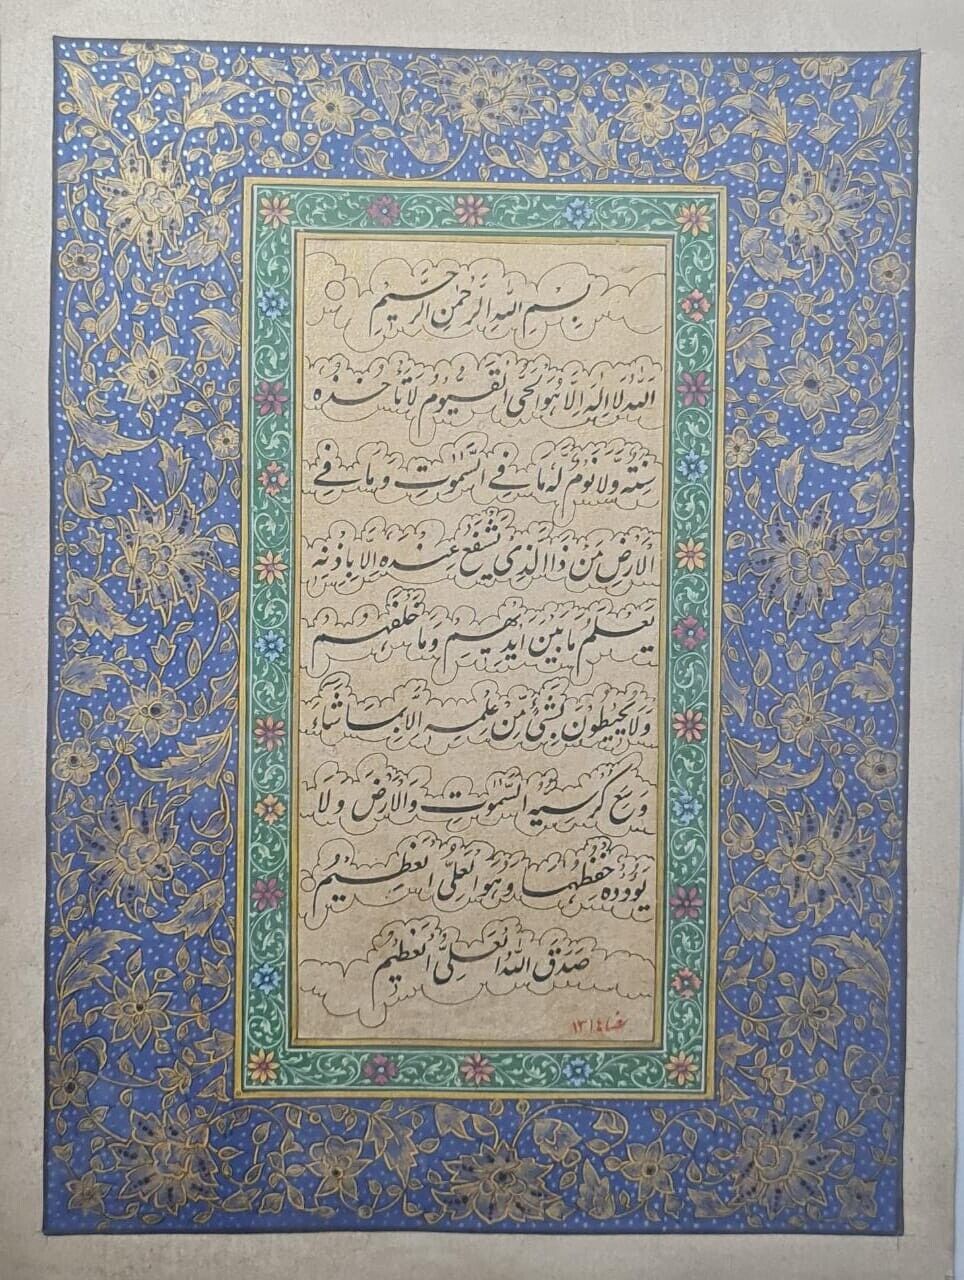 بِسْمِ اللهِ الرَّحْمٰنِ الرَّحِيْمِ
اَللهُ لَا اِلٰهَ اِلَّا هُوَ الْحَىُّ الْقَيُّوْمُ لَا تَاْخُذُهٗ
سِنَةٌ وَّلَا نَوْمٌ لَهٗ مَا فِى السَّمٰوٰتِ وَمَا فِى
الْاَرْضِ مَنْ ذَا الَّذِىْ يَشْفَعُ عِنْدَهٗ اِلَّا بِاِذْنِهٖ
يَعْلَمُ مَا بَيْنَ اَيْدِيْهِمْ وَمَا خَلْفَهُمْ
وَلَا يُحِيْطُوْنَ بِشَىْءٍ مِّنْ عِلْمِهٖ اِلَّا بِمَا شَآءَ
وَسِعَ كُرْسِيُّهُ السَّمٰوٰتِ وَالْاَرْضَ وَلَا
يَؤُدُهٗ حِفْظُهُمَا وَهُوَ الْعَلِىُّ الْعَظِيْمُ
صَدَقَ اللهُ الْعَلِىُّ الْعَظِيْمُ